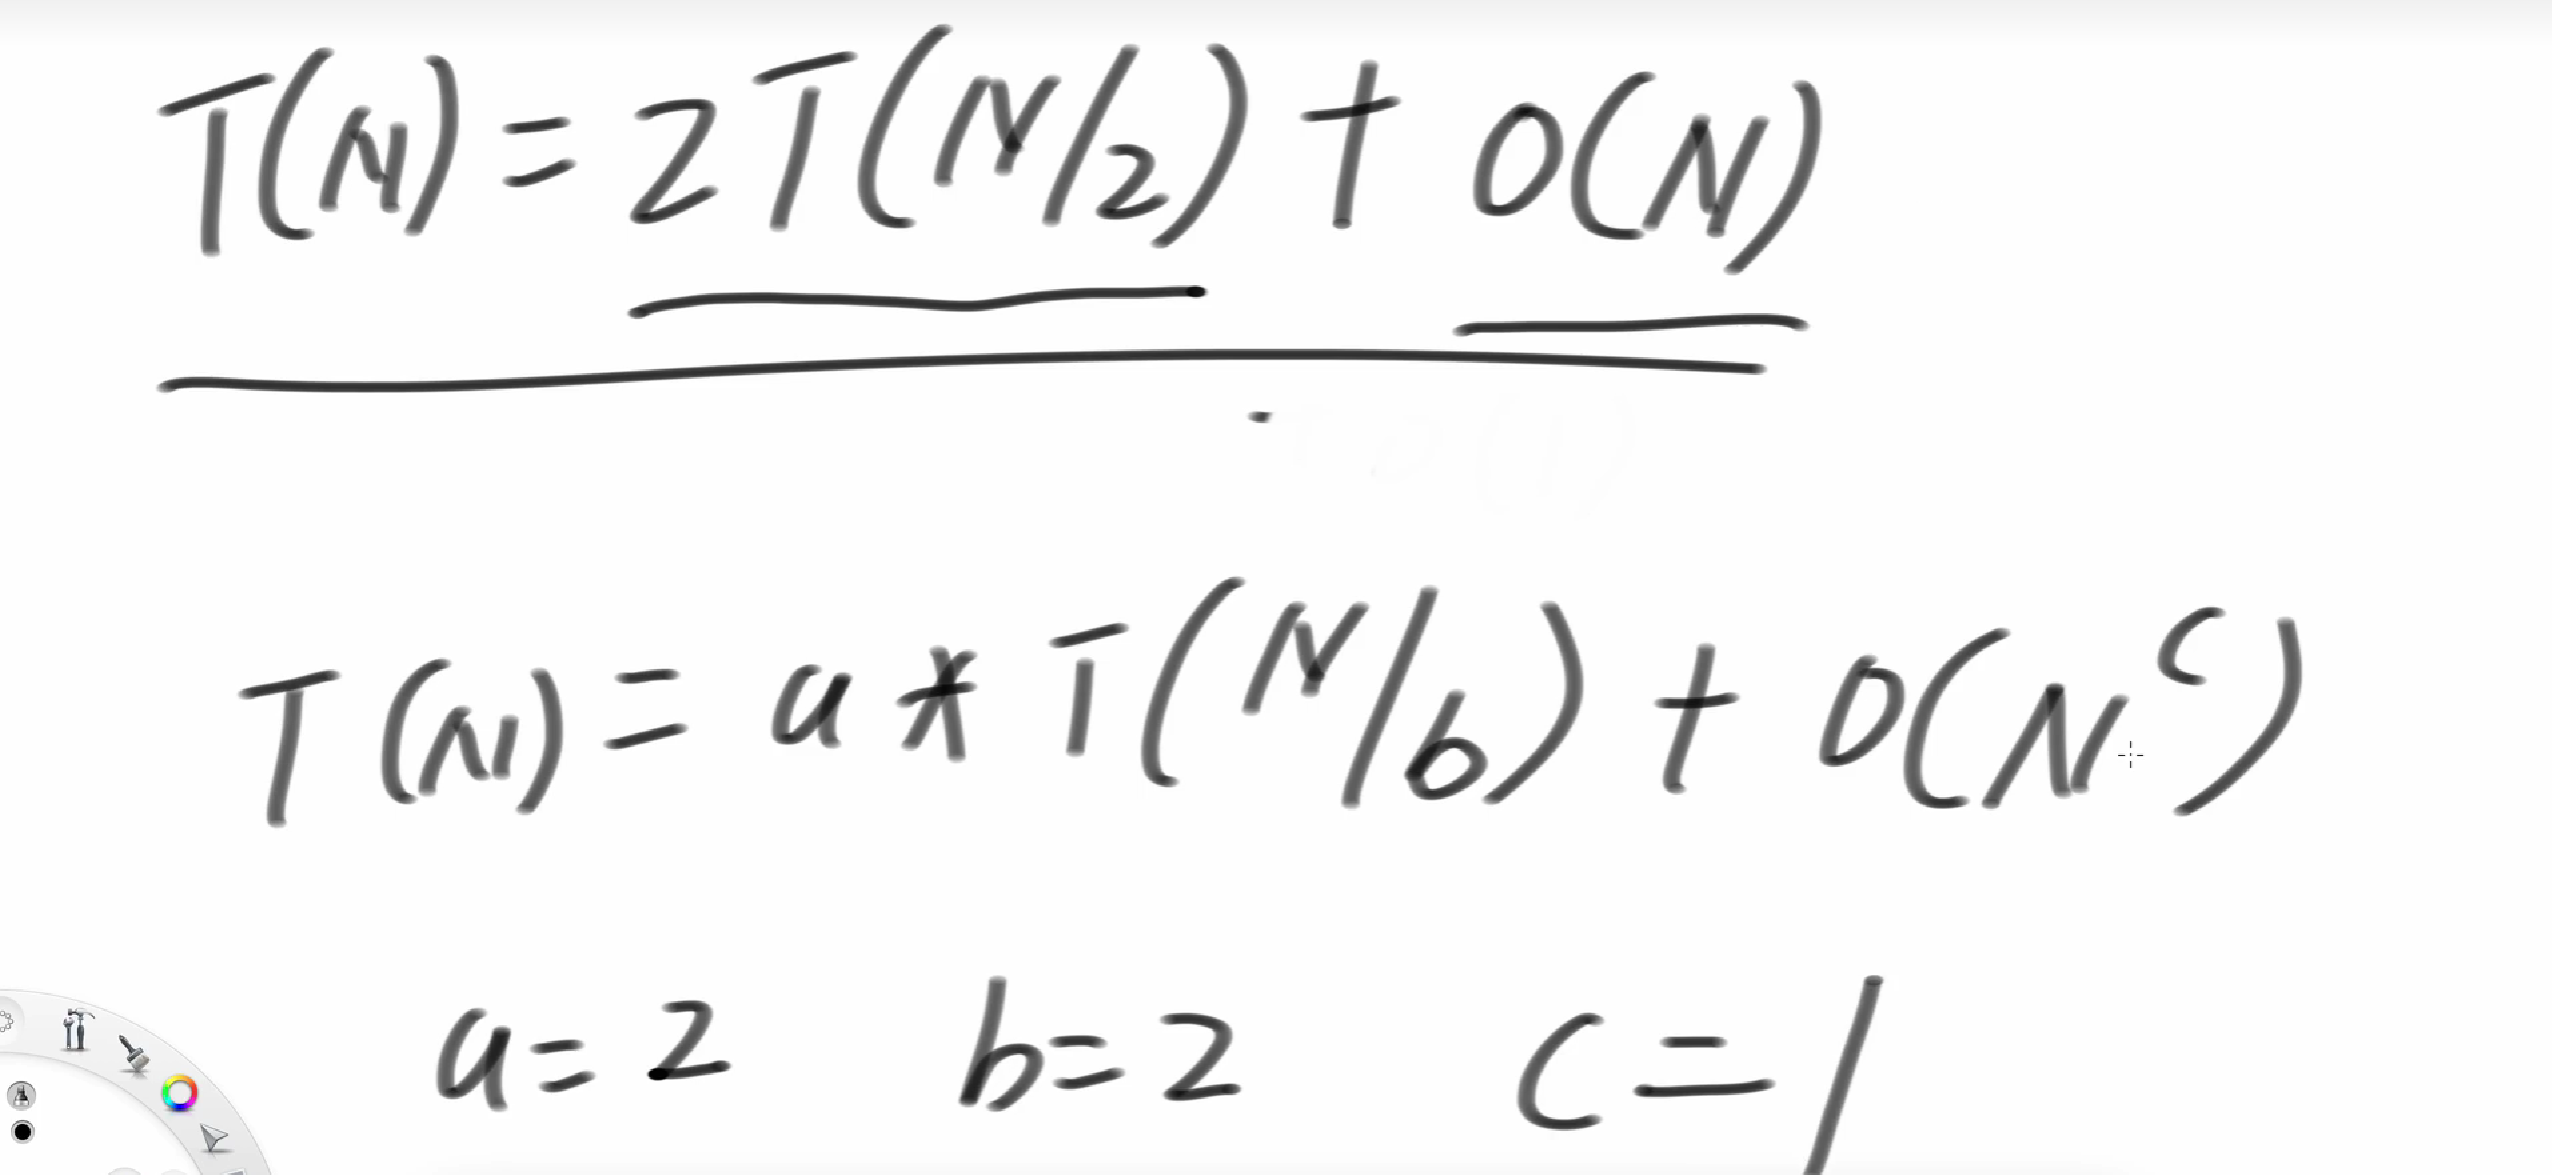 T(N) = 2T(N/2) + O(N)
T(N) = a * T(N/b) + O(N^c)
a = 2 b = 2 c = 1